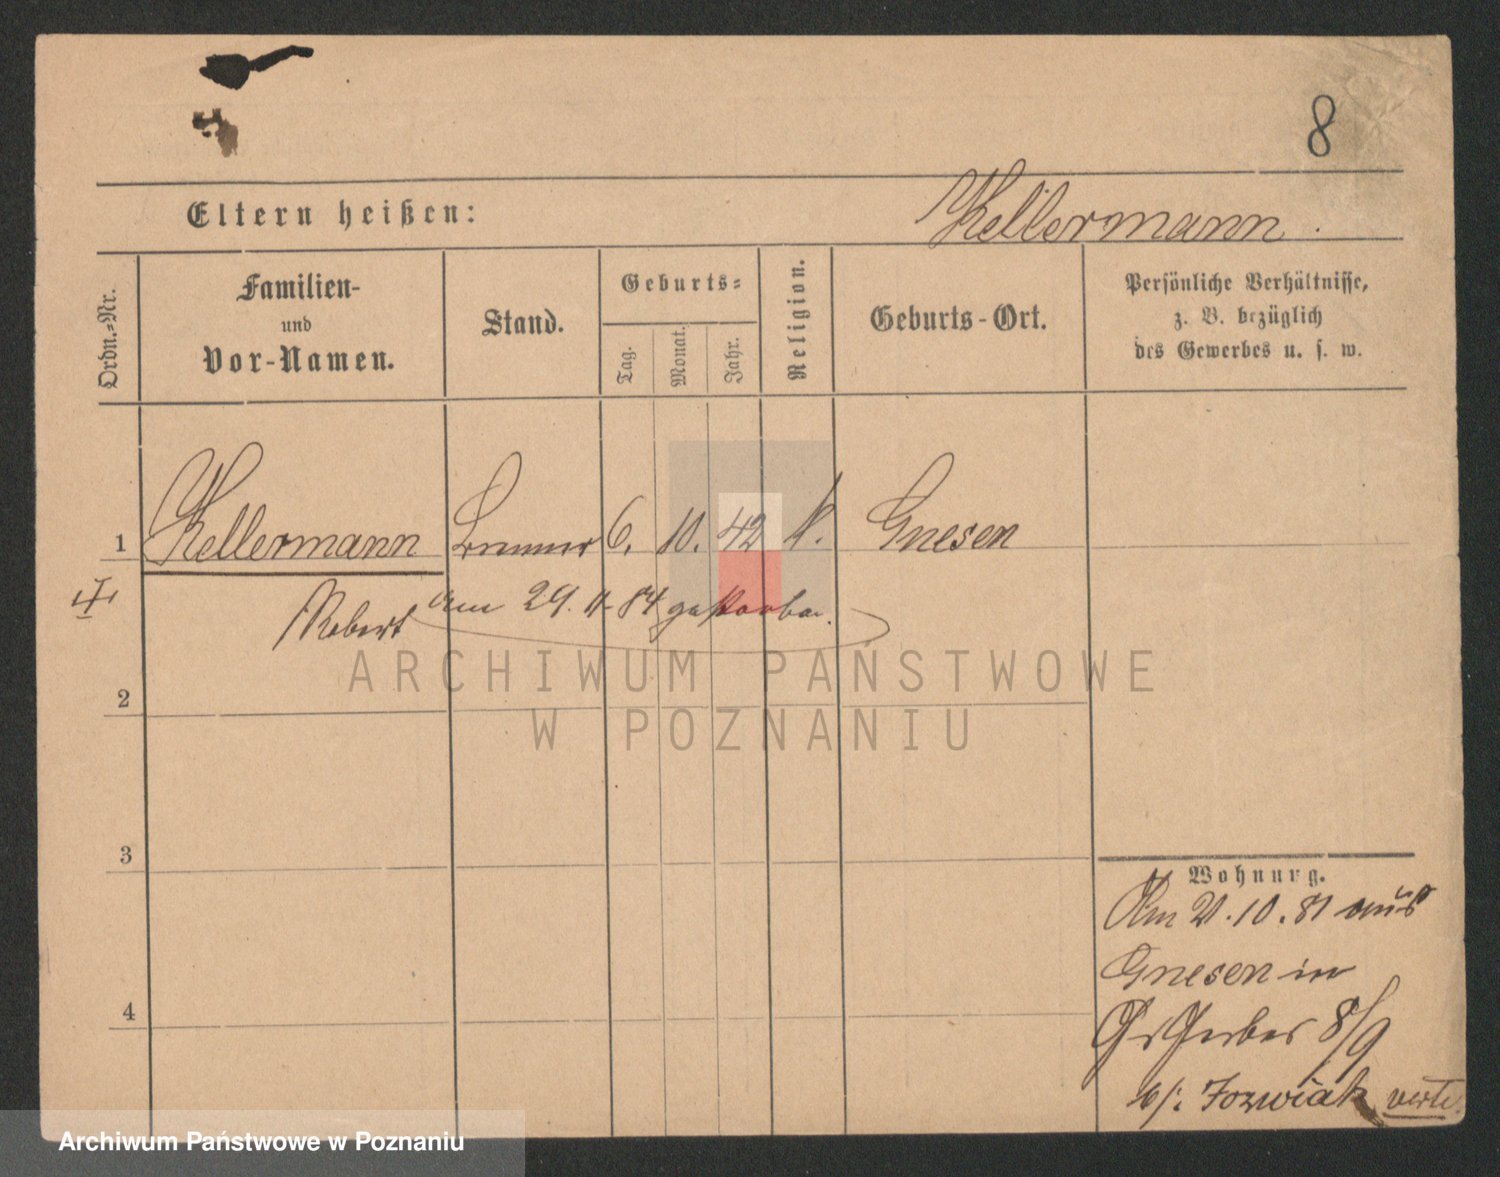 8
Eltern heißen:
Kellermann.
Ordn.-Nr.
Familien-
und
Vor-Namen.
Stand.
Geburts-
Tag.
Monat.
Jahr.
Religion.
Geburts-Ort.
Persönliche Verhältnisse,
z. B. bezüglich
des Gewerbes u. s. w.
1 Kellermann 6. 10. 42 k. Gnesen
Robert am 29. 11. 84 gestorben.
ARCHIWUM PAŃSTWOWE
W POZNANIU
2
3
4
Wohnung.
Am 21.10.81 aus
Gnesen in
Gr Gerber 8/9
b/: Jozwiak verte
Archiwum Państwowe w Poznaniu